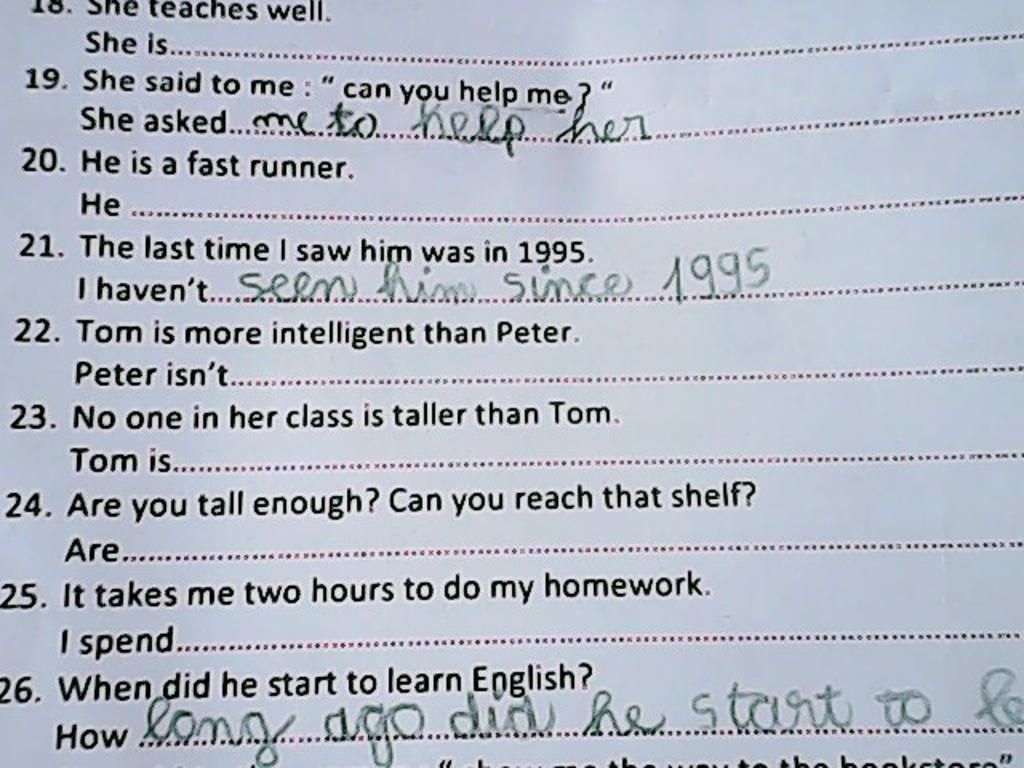 18. She teaches well.
She is
19. She said to me : " can you help me ? "
She asked me to help her
20. He is a fast runner.
He
21. The last time I saw him was in 1995.
I haven't seen him since 1995
22. Tom is more intelligent than Peter.
Peter isn't
23. No one in her class is taller than Tom.
Tom is
24. Are you tall enough? Can you reach that shelf?
Are
25. It takes me two hours to do my homework.
I spend
26. When did he start to learn English?
How long ago did he start to le
" show me the way to the bookstore"